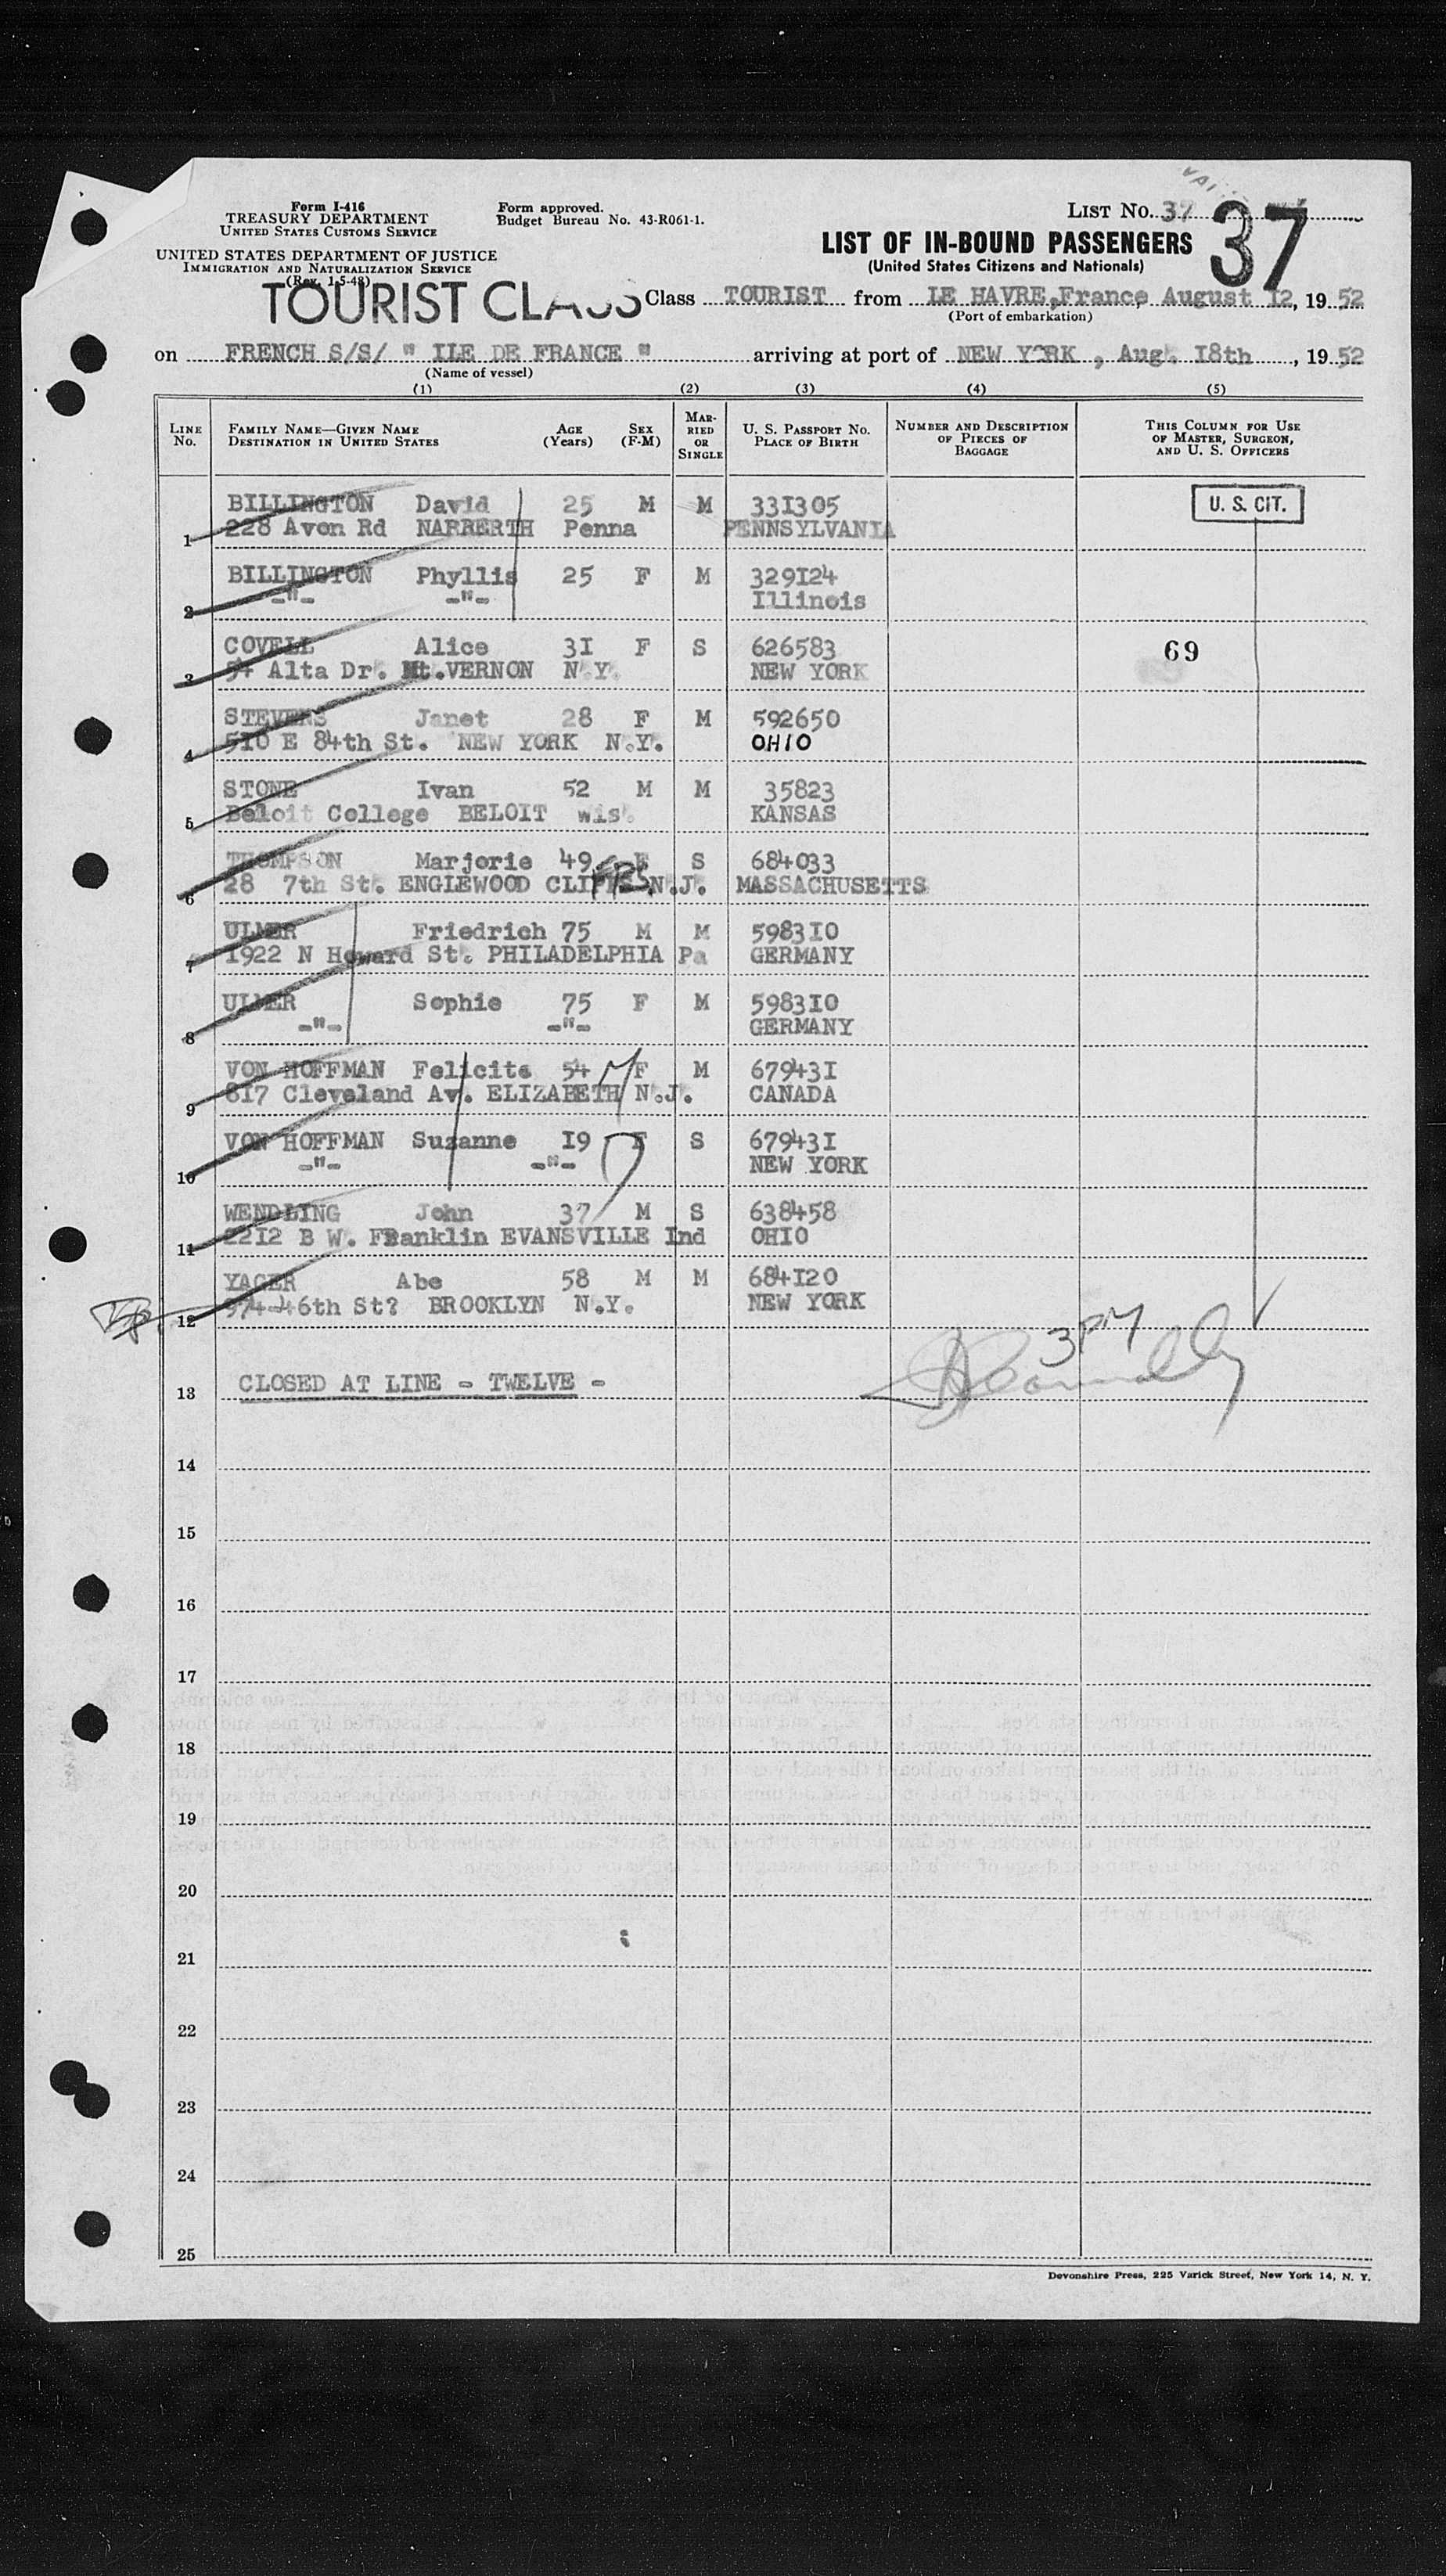 Form I-416
TREASURY DEPARTMENT
UNITED STATES CUSTOMS SERVICE
UNITED STATES DEPARTMENT OF JUSTICE
IMMIGRATION AND NATURALIZATION SERVICE
(Rev. 1-5-48)
Form approved.
Budget Bureau No. 43-R061-1.
LIST NO. 37
37
LIST OF IN-BOUND PASSENGERS
(United States Citizens and Nationals)
TOURIST CLASS
Class TOURIST from LE HAVRE, France, August 12, 19 52
(Port of embarkation)
on FRENCH S/S/ " ILE DE FRANCE " arriving at port of NEW YORK , Aug. 18th , 19 52
(Name of vessel)
(1) (2) (3) (4) (5)
LINE NO. FAMILY NAME—GIVEN NAME DESTINATION IN UNITED STATES AGE (Years) SEX (F-M) MARRIED OR SINGLE U. S. PASSPORT NO. PLACE OF BIRTH NUMBER AND DESCRIPTION OF PIECES OF BAGGAGE THIS COLUMN FOR USE OF MASTER, SURGEON, AND U. S. OFFICERS
BILLINGTON David 25 M M 331305 U. S. CIT.
1 228 Avon Rd NARBERTH Penna PENNSYLVANIA
BILLINGTON Phyllis 25 F M 329124
2 -"- -"- Illinois
COVELL Alice 31 F S 626583 69
3 54 Alta Dr. Mt.VERNON N.Y. NEW YORK
STEVENS Janet 28 F M 592650
4 510 E 84th St. NEW YORK N.Y. OHIO
STONE Ivan 52 M M 35823
5 Beloit College BELOIT wis. KANSAS
THOMPSON Marjorie 49 F S 684033
6 28 7th St. ENGLEWOOD CLIFFS N.J. MASSACHUSETTS
ULMER Friedrich 75 M M 598310
7 1922 N Howard St. PHILADELPHIA Pa GERMANY
ULMER Sophie 75 F M 598310
8 -"- -"- GERMANY
VON HOFFMAN Felicite 54 F M 679431
9 817 Cleveland Av. ELIZABETH N.J. CANADA
VON HOFFMAN Suzanne 19 F S 679431
10 -"- -"- NEW YORK
WENDLING John 37 M S 638458
11 2212 B W. Franklin EVANSVILLE Ind OHIO
YAGER Abe 58 M M 684120
12 974-46th St? BROOKLYN N.Y. NEW YORK
3 PM
13 CLOSED AT LINE - TWELVE -
14
15
16
17
18
19
20
21
22
23
24
25
Devonshire Press, 225 Varick Street, New York 14, N. Y.